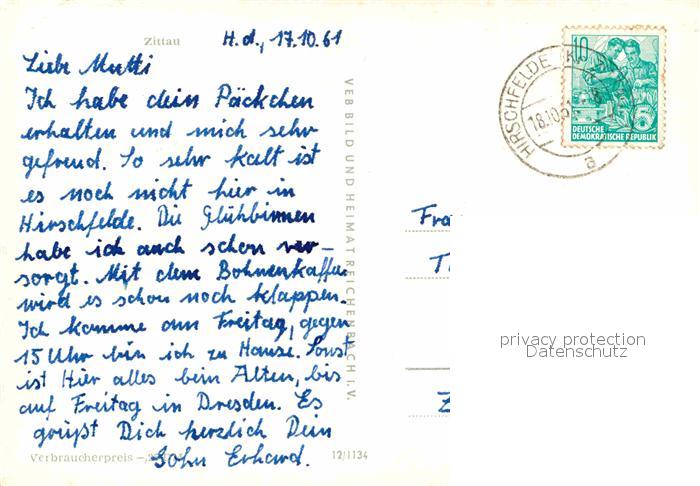 Zittau
H.d., 17.10.61
Liebe Mutti
Ich habe dein Päckchen
erhalten und mich sehr
gefreud. So sehr kalt ist
es noch nicht hier in
Hirschfelde. Die Glühbirnen
habe ich auch schon ver-
sorgt. Mit dem Bohnenkaffee
wird es schon noch klappen.
Ich komme am Freitag, gegen
15 Uhr bin ich zu Hause. Sonst
ist Hier alles beim Alten, bis
auf Freitag in Dresden. Es
grüßt Dich herzlich Dein
Sohn Erhard.
Verbraucherpreis
12/1134
VEB BILD UND HEIMAT REICHENBACH I. V.
HIRSCHFELDE
18.10.61
a
10
5
DEUTSCHE
DEMOKRATISCHE REPUBLIK
Fra
T
Z
privacy protection
Datenschutz